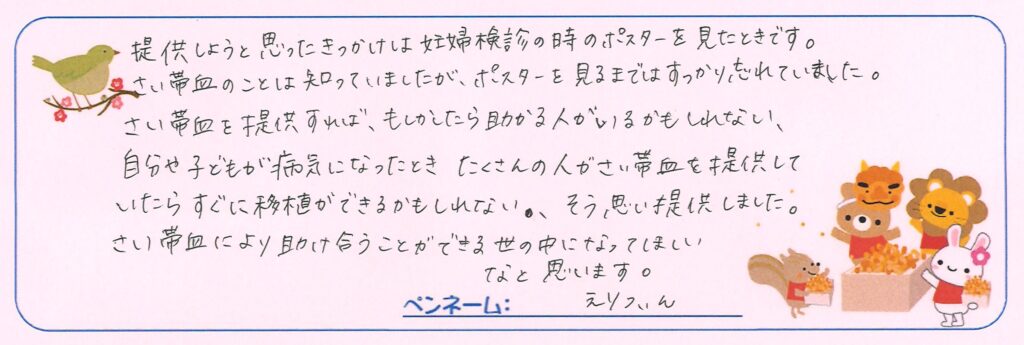 提供しようと思ったきっかけは妊婦検診の時のポスターを見たときです。
さい帯血のことは知っていましたが、ポスターを見るまではすっかり忘れていました。
さい帯血を提供すれば、もしかしたら助かる人がいるかもしれない、
自分や子どもが病気になったとき たくさんの人がさい帯血を提供して
いたらすぐに移植ができるかもしれない、そう思い提供しました。
さい帯血により助け合うことができる世の中になってほしい
なと思います。
ペンネーム: